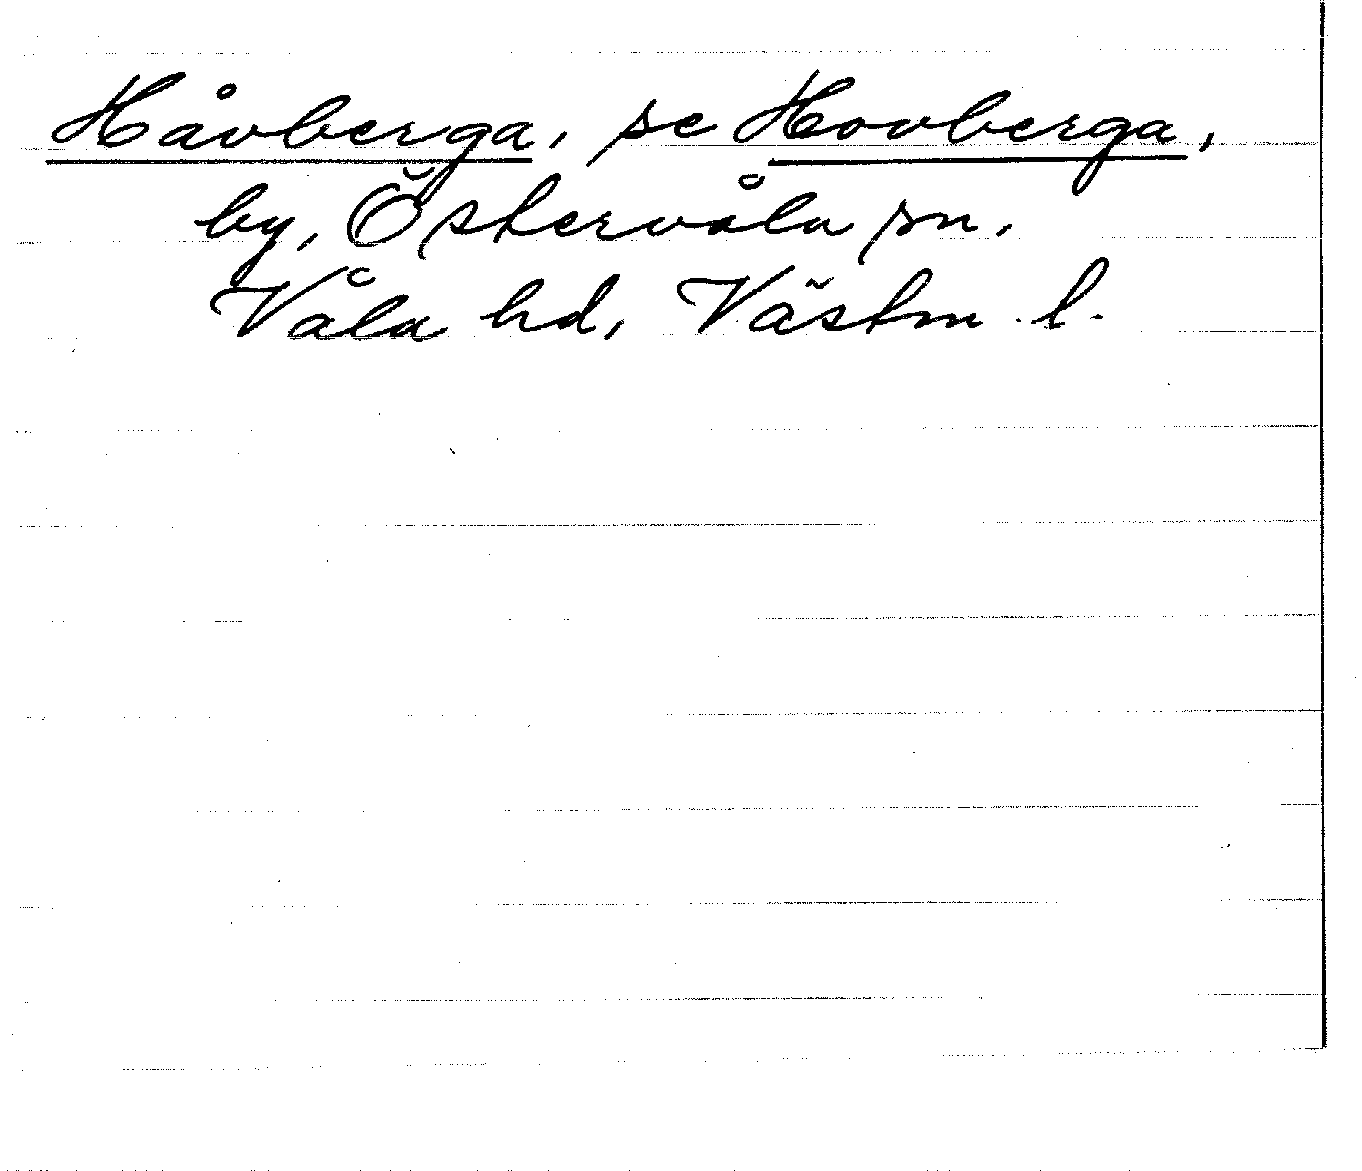 Håvberga, se Hovberga,
by, Östervåla sn.
Våla hd, Västm. l.